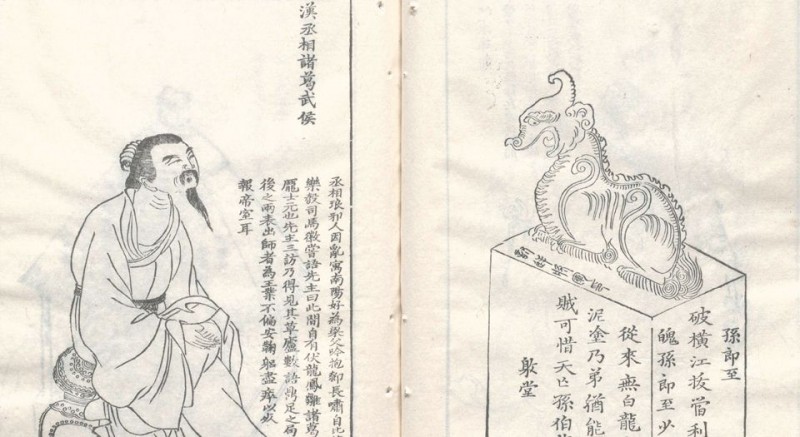 孫郎至
破橫江拔當利
魄孫郎至少
從來無白龍
泥塗乃弟猶能
賊可惜天亡孫伯
堂
漢丞相諸葛武侯
丞相琅邪人因亂寓南陽好為梁父吟抱膝長嘯自比
樂毅司馬徽嘗語先主曰此間自有伏龍鳳雛諸葛
龐士元也先主三訪乃得見其草廬數語鼎足之局
後之兩表出師者為王業不偏安鞠躬盡瘁以
報帝室耳